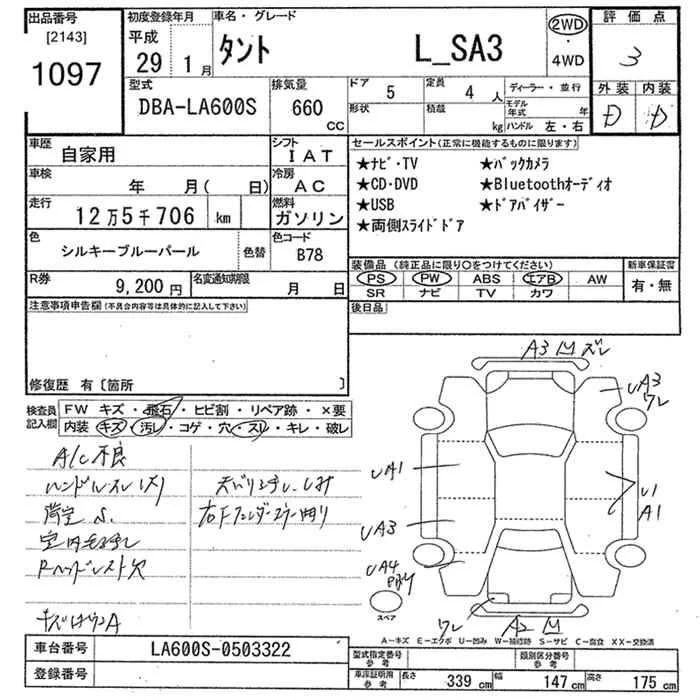 出品番号
[2143]
1097
初度登録年月
平成
29 1月
車名・グレード
タント L_SA3
2WD
・
4WD
評価点
3
外装 内装
D D
型式
DBA-LA600S
排気量
660
CC
ドア
5
定員
4 人
形状
積載
kg
ディーラー・並行
モデル年式 年
ハンドル 左・右
車歴
自家用
シフト
IAT
車検
年 月( 日)
冷房
AC
走行
12万5千706 km
燃料
ガソリン
色
シルキーブルーパール
色替
色コード
B78
R券
9,200円
名変通知期限
月 日
セールスポイント(正常に機能するものに限ります)
★ナビ・TV ★バックカメラ
★CD・DVD ★Bluetoothオーディオ
★USB ★ドアバイザー
★両側スライドドア
装備品(純正品に限り○をつけてください)
PS PW ABS エアB AW
SR ナビ TV カワ
新車保証書
有・無
後日品
注意事項申告欄(不具合内容等は具体的に記入して下さい)
修復歴 有〔箇所 〕
検査員記入欄
FW キズ・飛石・ヒビ割・リペア跡・×要
内装 キズ・汚レ・コゲ・穴・スレ・キレ・破レ
A/C不良
ハンドルスレ
Rヘッドレスト欠
A3
ズレ
A3
ワレ
UA1
UA3
UA4
U1
A1
ワレ
A2
スペア
A-キズ E-エクボ U-凹み W-補修跡 S-サビ C-腐食 XX-交換済
車台番号
LA600S-0503322
登録番号
型式指定番号
参考
類別区分番号
参考
車庫証明用
参考
長さ 339 cm
幅 147 cm
高さ 175 cm